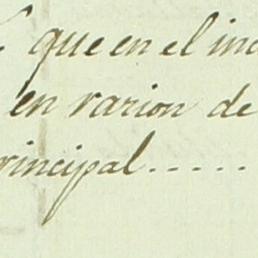 que en el inc
en rarion de
rincipal.....